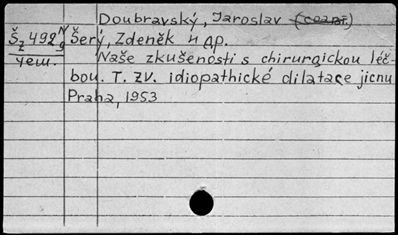 Doubravský, Jaroslav (соавт.)
Šz 492 N/9 Šerý, Zdeněk и др.
чеш. Naše zkušenosti s chirurgickou léč-
bou. T. zv. idiopathické dilatace jicnu
Praha, 1953